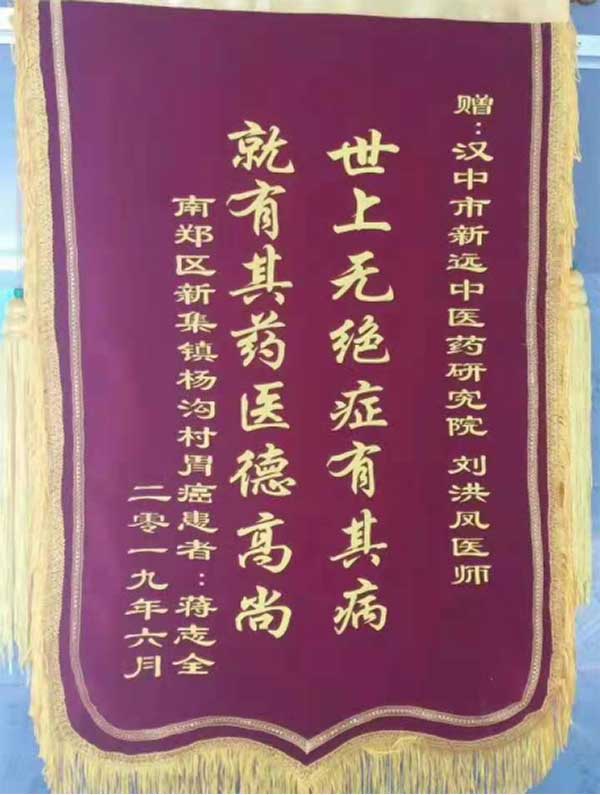 赠：汉中市新远中医药研究院 刘洪凤医师
世上无绝症有其病
就有其药医德高尚
南郑区新集镇杨沟村胃癌患者：蒋志全
二零一九年六月